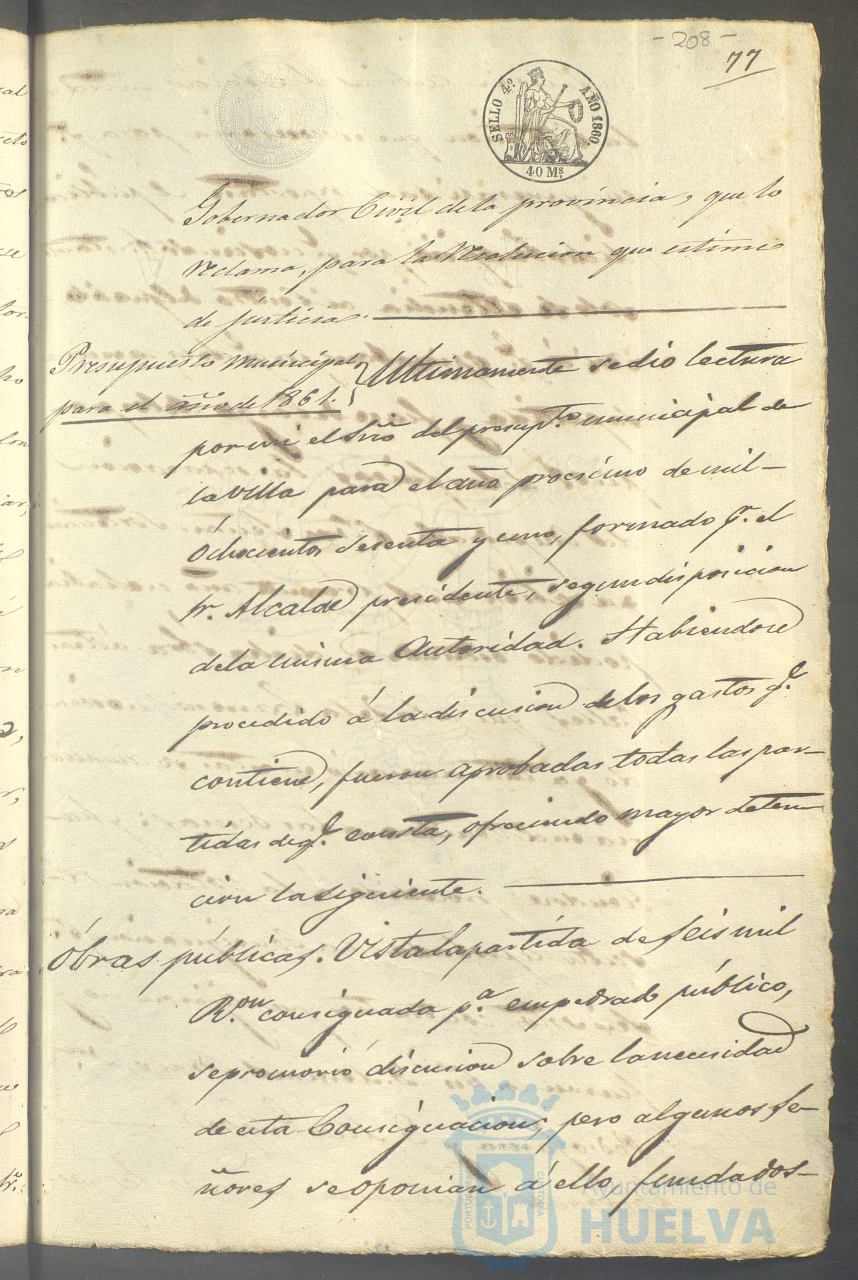 - 208 -
77
SELLO 4º AÑO 1860.
40 Ms.
Gobernador Civil de la provincia, que lo
reclama, para la resolucion que estime
de justicia.
Presupuesto municipal
para el año de 1861.
Ultimamente se dio lectura
por mi el Srio del presupto municipal de
la villa para el año procsimo de mil
Ochocientos sesenta y uno, formado pr. el
Sr. Alcalde presidente, segun disposicion
de la misma Autoridad. Habiendose
procedido á la discusion de los gastos qe.
contiene, fueron aprobadas todas las par-
tidas de qe. consta, ofreciendo mayor deten
cion la siguiente.
Obras públicas. Vista la partida de seis mil
Rs. on consignada pa. empedrado público,
se promovió discusion sobre la necesidad
de esta Consignacion; pero algunos Se-
ñores se oponian á ello fundados
PORTUS MARIS ET TERRÆ CUSTODIA
Ayuntamiento de
HUELVA